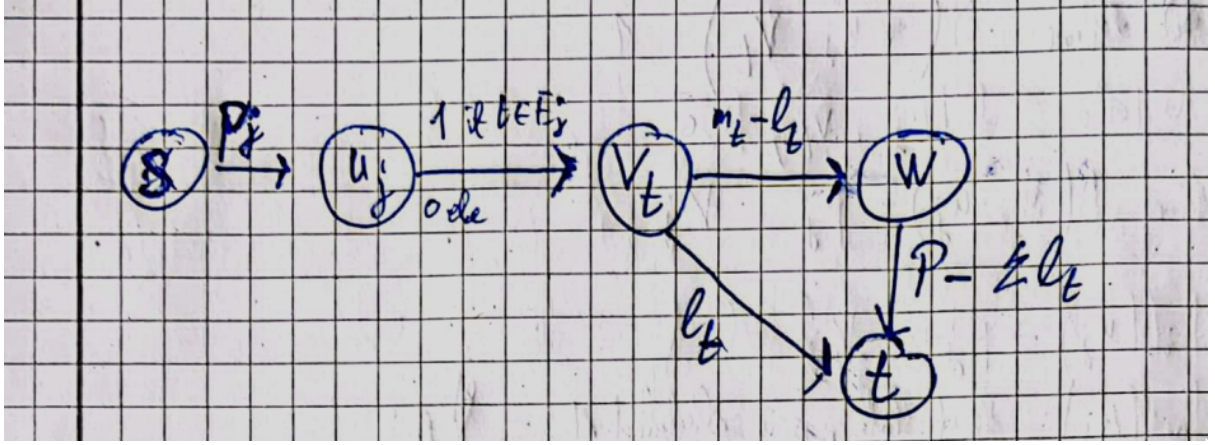 S
p_j
u_j
1 if t∈E_j
0 else
V_t
m_t - l_t
W
l_t
P - Σ l_t
t